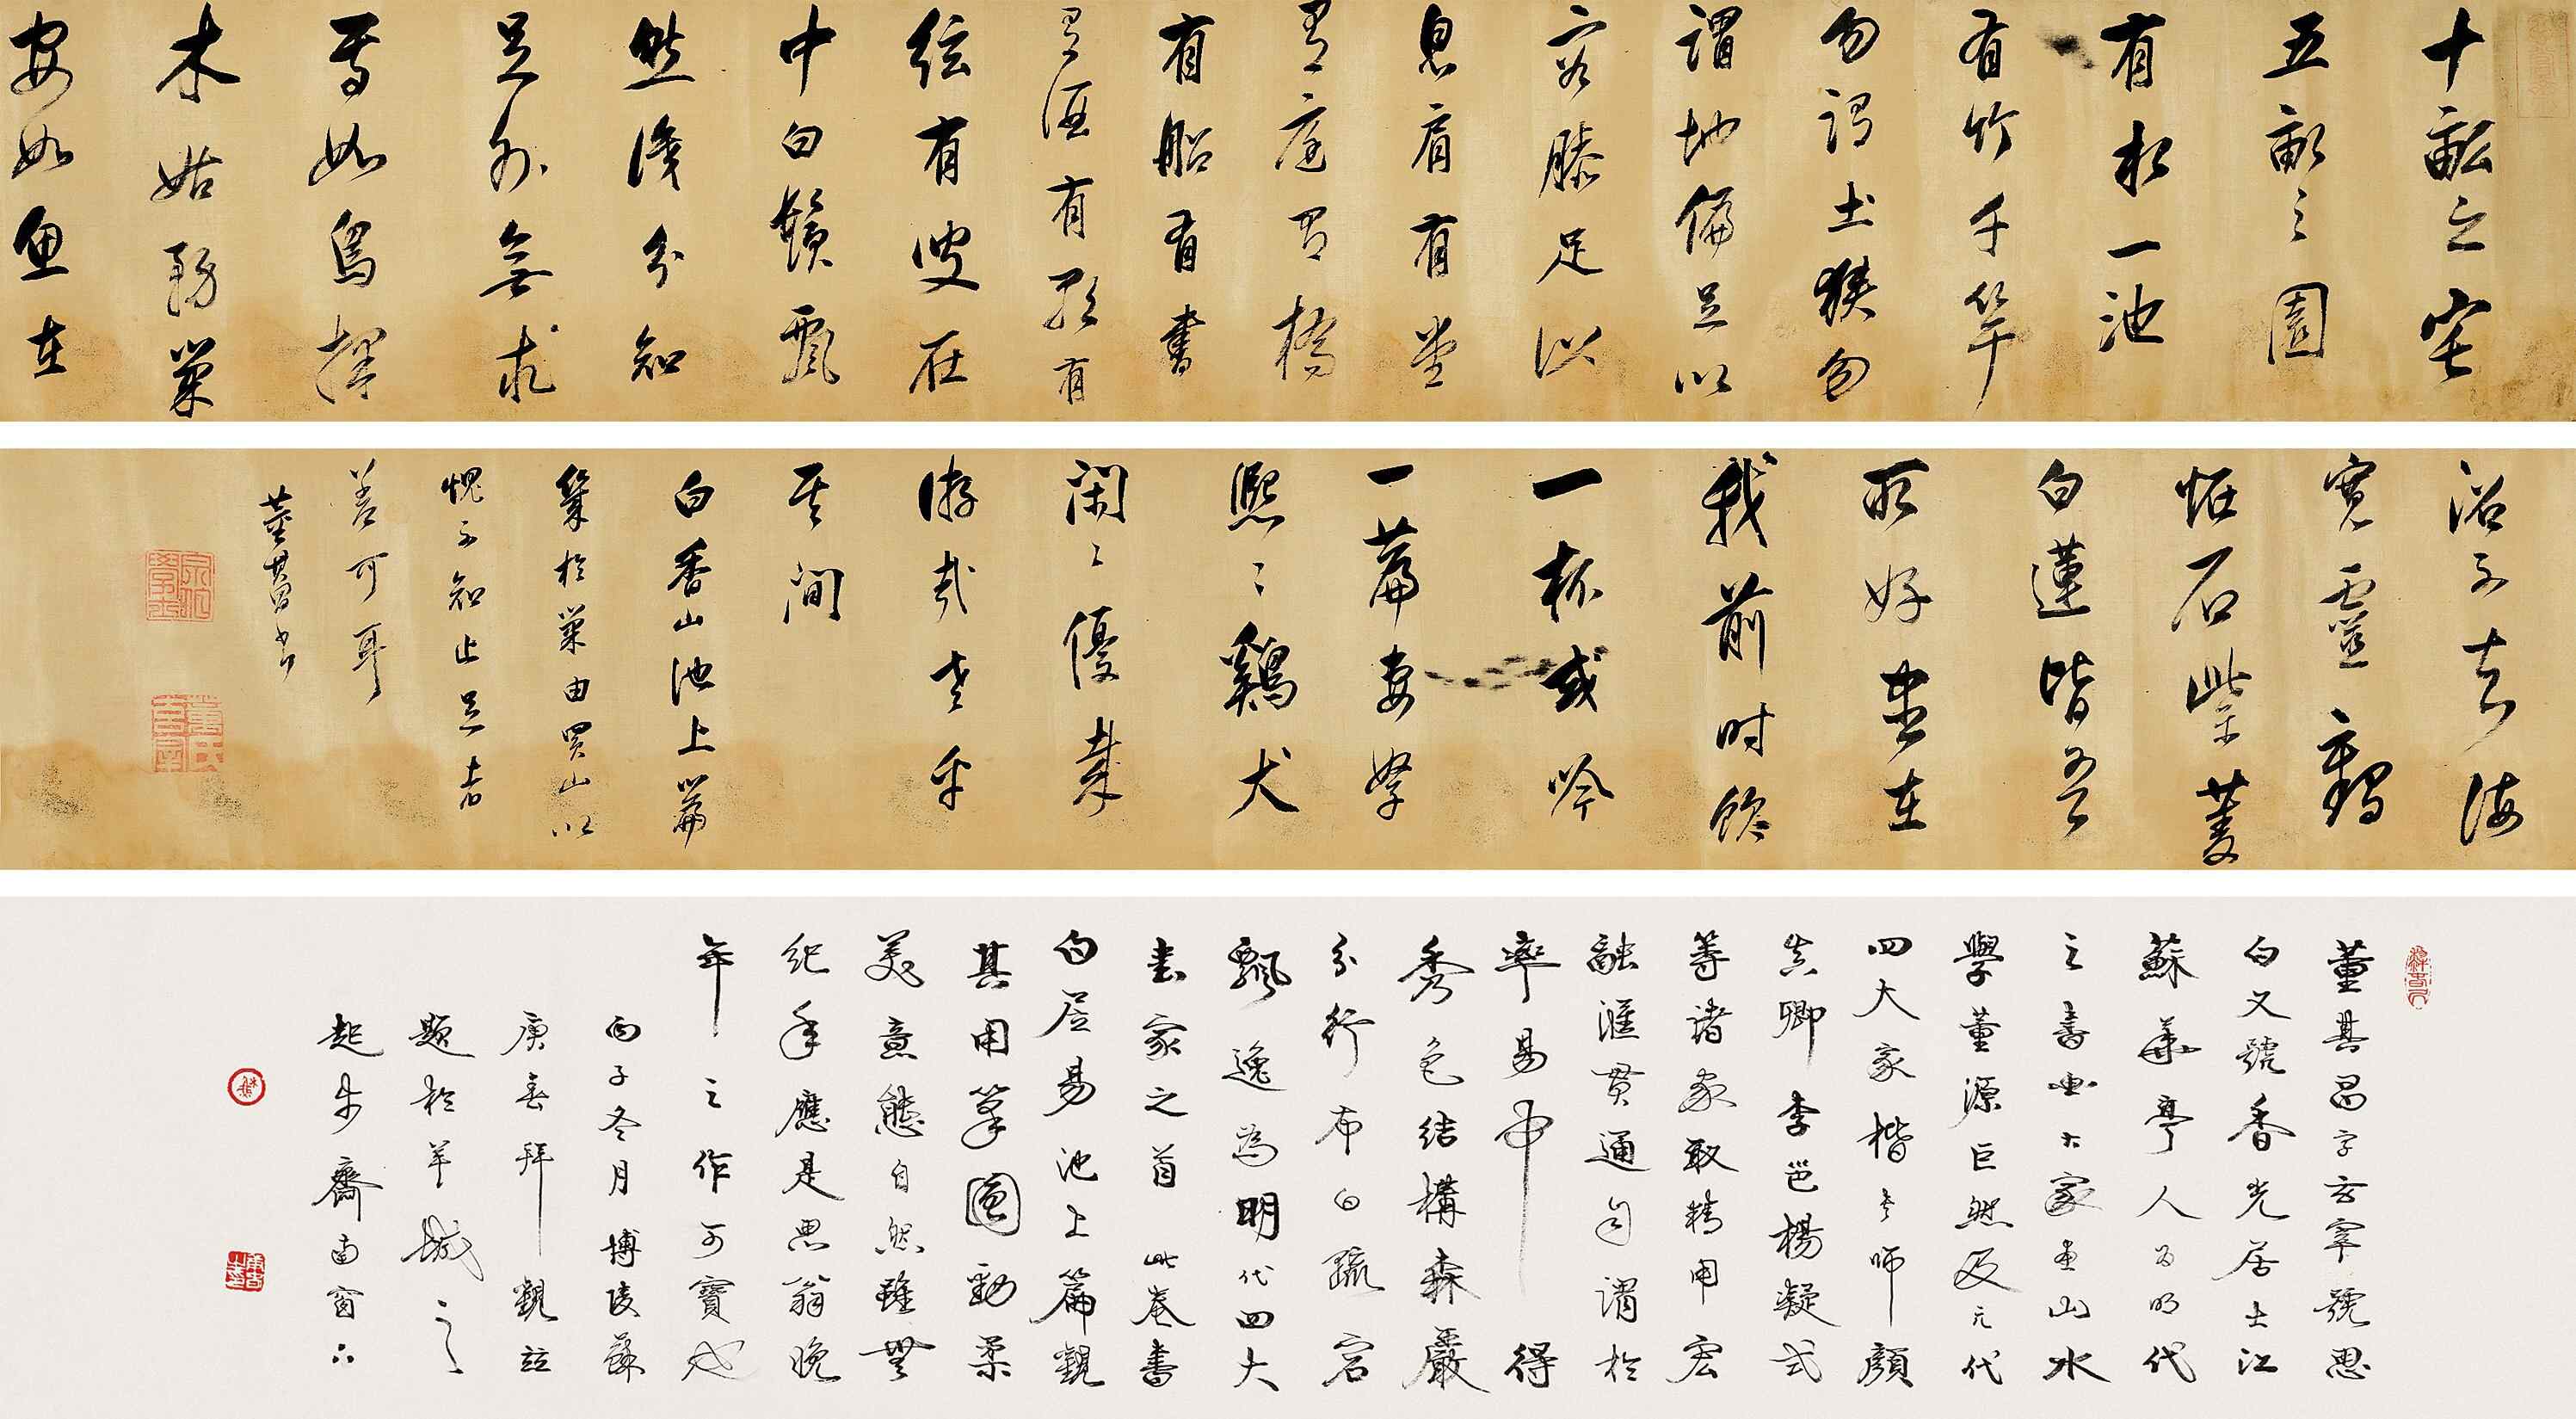 十畝之宅
五畝之園
有水一池
有竹千竿
勿謂土狹勿
謂地偏足以
容膝足以
息肩有堂
有庭有橋
有船有書
有酒有歌有
弦有叟在
中白鬚飄
然識分知
足外無求
焉如鳥擇
木姑務巢
安如魚在
沼不海
寬靈鶴
恠石紫菱
白蓮皆吾
所好盡在
我前時飲
一杯或吟
一篇妻孥
熙〻鷄犬
閑〻優哉
游哉老乎
其間
白香山池上篇
於巢由買山以
愧不知止足者
善可耳
董其昌書
宗伯學士
董氏玄宰
董其昌字玄宰號思
白又號香光居士江
蘇華亭人為明代
之書畫大家畫山水
學董源巨然及元代
四大家楷書師顏
真卿李邕楊凝式
等諸家取精用宏
融滙貫通自謂於
率易中得
秀色結構森嚴
分行布白疏宕
飄逸為明代四大
書家之首此卷書
白居易池上篇觀
其用筆圓勁柔
美意態自然雖無
紀年應是思翁晚
年之作可寶也
丙子冬月博陵蘇
庚春拜觀並
題於羊城之
起步齋南窗下